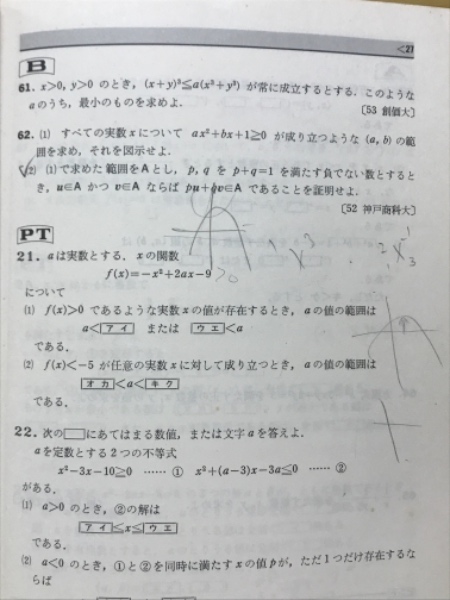 <27
B
61. x>0, y>0 のとき, (x+y)³≦a(x³+y³) が常に成立するとする. このような
aのうち, 最小のものを求めよ.
〔53 創価大〕
62. (1) すべての実数xについて ax²+bx+1≧0 が成り立つような (a, b) の範
囲を求め, それを図示せよ.
(2) (1)で求めた範囲をAとし, p, q を p+q=1 を満たす負でない数とすると
き, u∈A かつ v∈A ならば pu+qv∈A であることを証明せよ.
〔52 神戸商科大〕
PT
21. aは実数とする. xの関数
f(x)=-x²+2ax-9 >0
について
(1) f(x)>0 であるような実数xの値が存在するとき, aの値の範囲は
a<アイ または ウエ<a
である.
(2) f(x)<-5 が任意の実数xに対して成り立つとき, aの値の範囲は
オカ<a<キク
である.
22. 次の□にあてはまる数値, または文字aを答えよ.
aを定数とする2つの不等式
x²-3x-10≧0 …… ① x²+(a-3)x-3a≦0 …… ②
がある.
(1) a>0 のとき, ②の解は
アイ≦x≦ウエ
である.
(2) a<0 のとき, ①と②を同時に満たすxの値pが, ただ1つだけ存在するな
らば